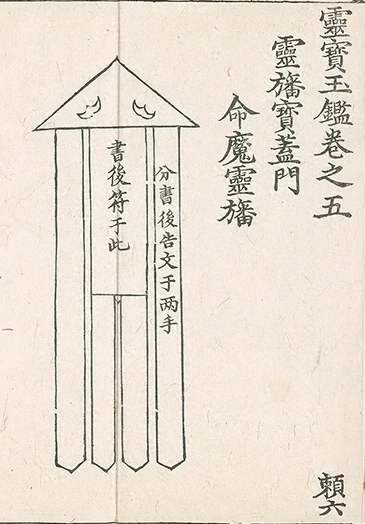 靈寶玉鑑卷之五
靈旛寶蓋門
命魔靈旛
分書後告文于两手
書後符于此
頼六